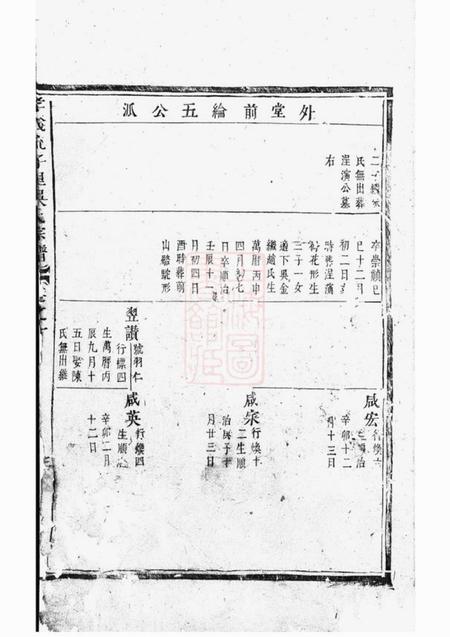 外堂前綸五公派
氏無出葬
崖演公墓
右
卒崇禎巳
巳十二月
初二日亥
時葬涅蕩
荷花形生
三子一女
適下吳金
繼趙氏生
萬曆丙申
四月初七
日卒順治
壬辰十一
月初四日
酉時葬前
山螃蜞形
咸宏
行煥六
生順治
辛卯十二
月十三日
咸宗
行煥十
二生順
治庚子十
月廿三日
翌讚
號羽仁
行標四
生萬曆丙
辰九月十
五日娶陳
氏無出繼
咸英
行煥四
生順治
辛卯二月
十二日